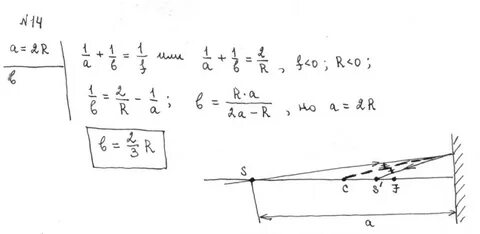 N14
a = 2R
b
1/a + 1/b = 1/f или 1/a + 1/b = 2/R , f<0 ; R<0 ;
1/b = 2/R - 1/a ; b = R·a/2a-R , но a = 2R
b = 2/3 R
S C S' F
a